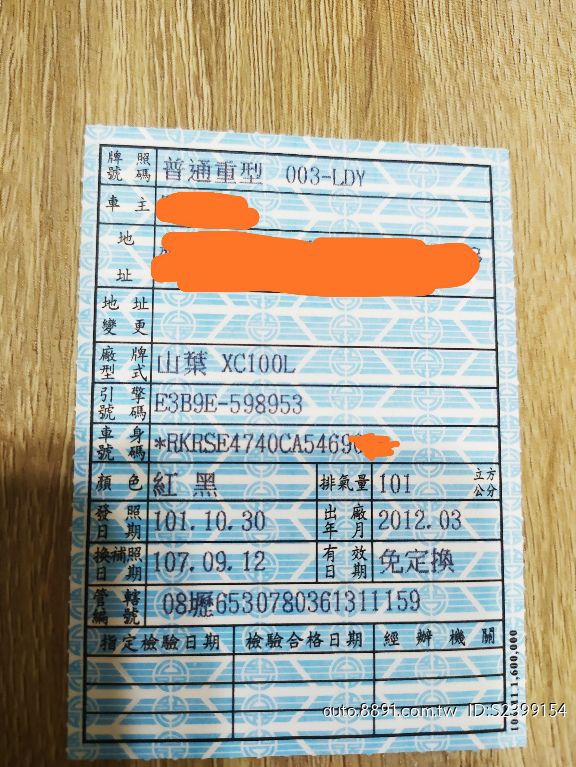 牌照號碼 普通重型 003-LDY
車主
地址
地址變更
廠牌型式 山葉 XC100L
引擎號碼 E3B9E-598953
車身號碼 *RKRSE4740CA5469
顏色 紅黑 排氣量 101 立方公分
發照日期 101.10.30 出廠年月 2012.03
換補照日期 107.09.12 有效日期 免定換
管轄編號 08壢6530780361311159
指定檢驗日期 檢驗合格日期 經辦機關
auto.8891.com.tw ID:S2399154